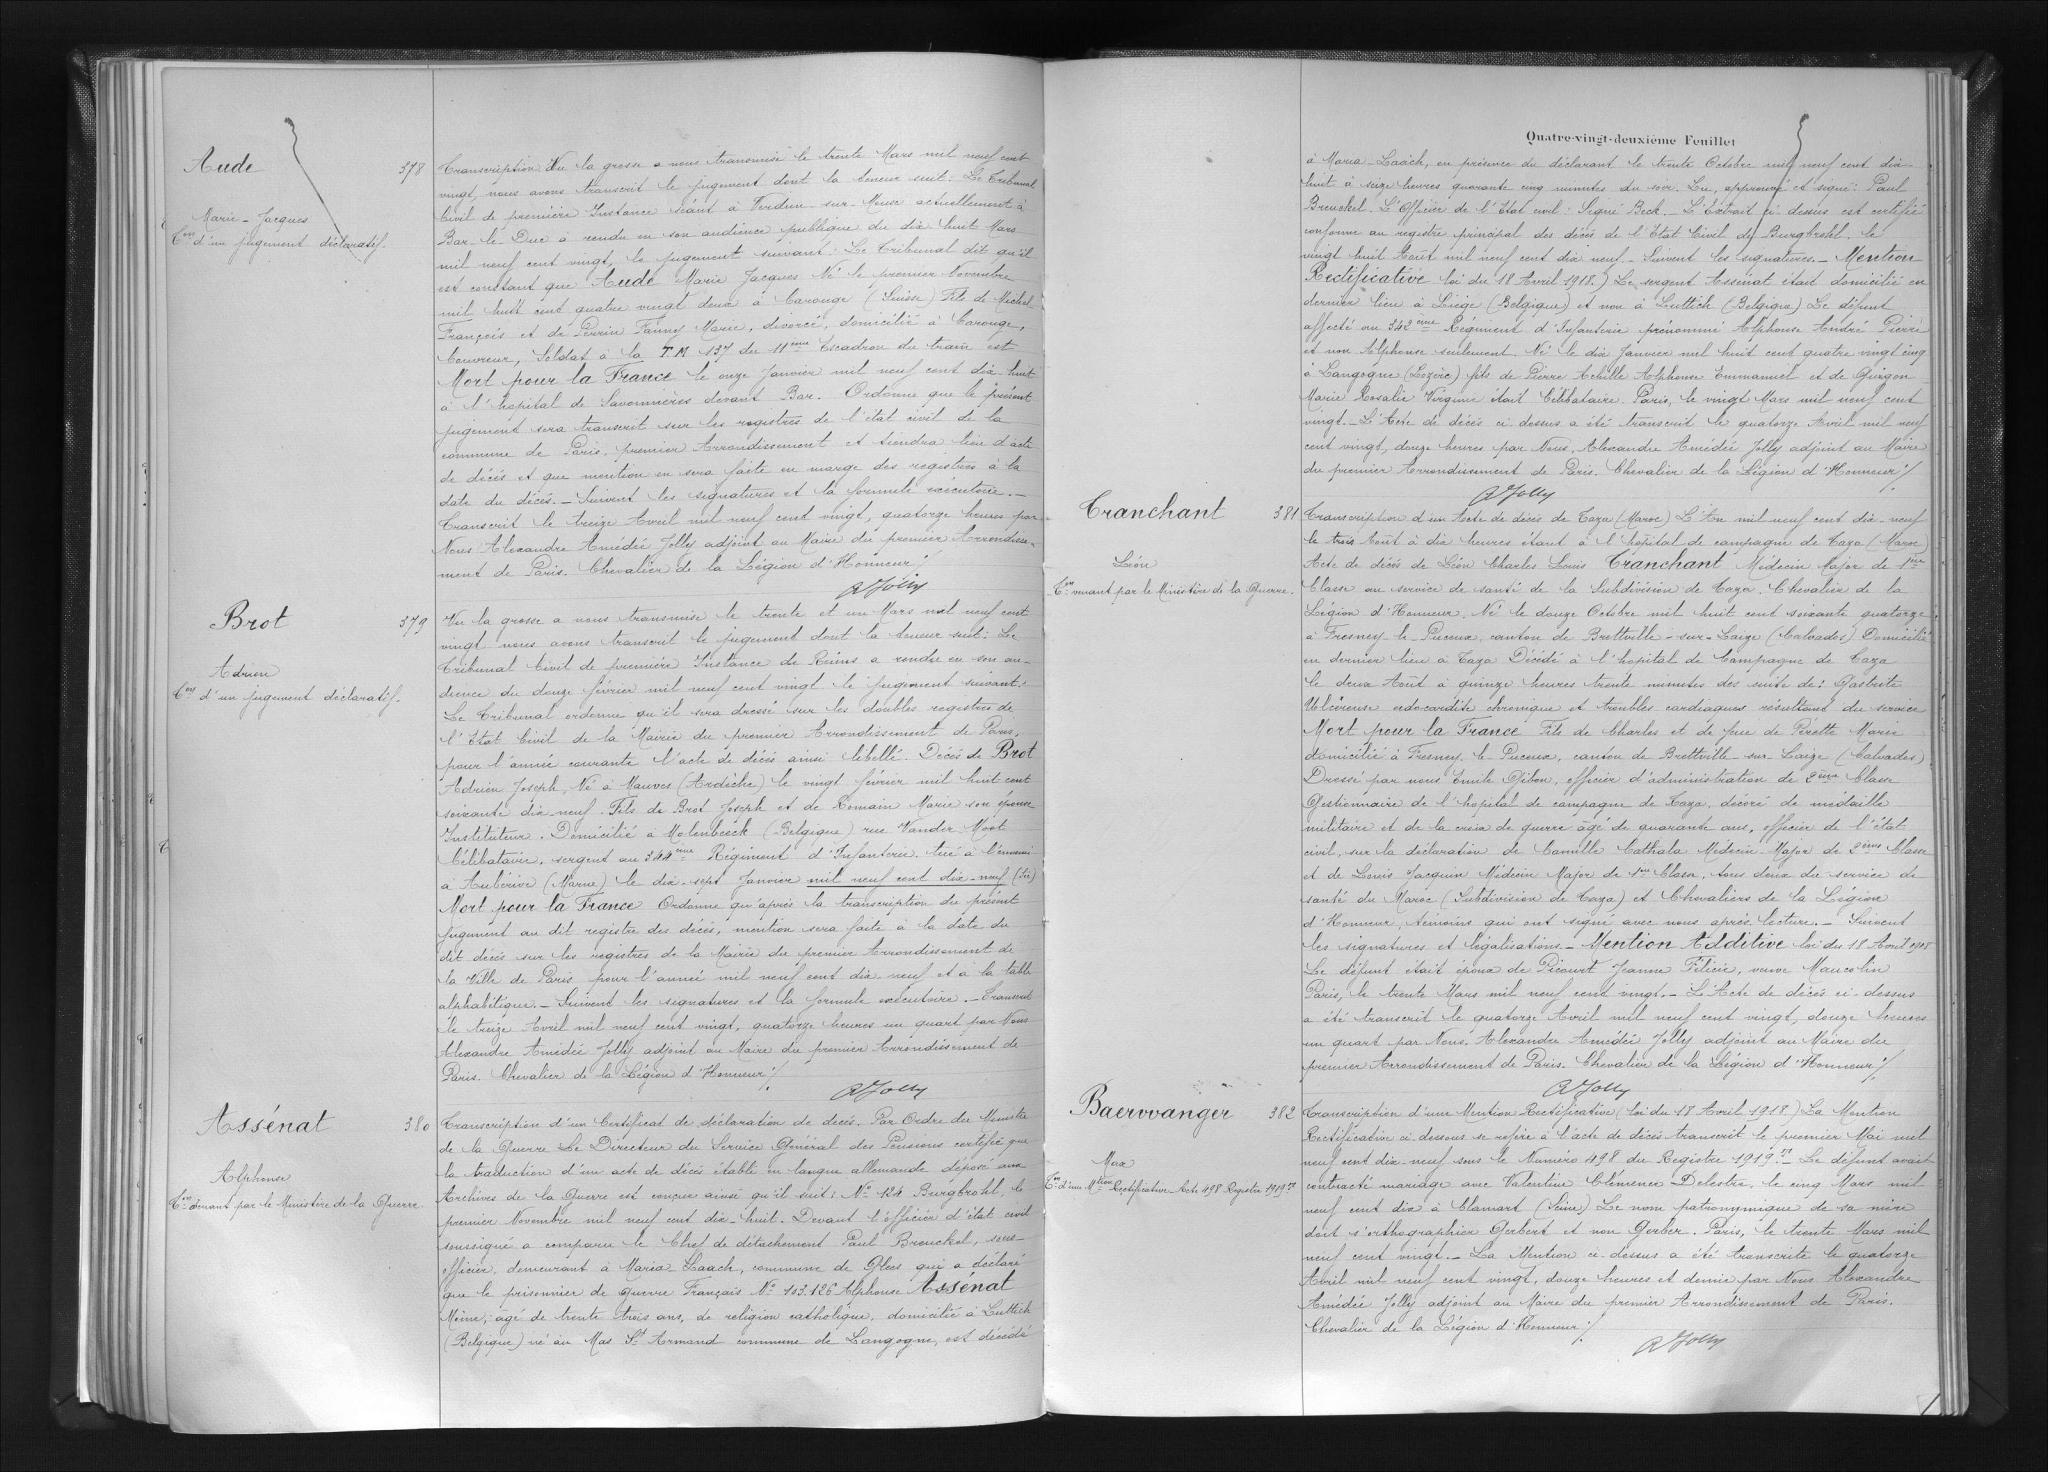 Aude
378
Marie-Jacques
Con d'un jugement déclaratif.
Transcription Vu la grosse a nous transmise le trente Mars mil neuf cent
vingt, nous avons transcrit le jugement dont la teneur suit: Le Tribunal
Civil de première Instance séant à Verdun-sur-Meuse actuellement à
Bar-le-Duc à rendu en son audience publique du dix huit Mars
mil neuf cent vingt, le jugement suivant: Le Tribunal dit qu'il
est constant que Aude Marie Jacques Né le premier Novembre
mil huit cent quatre vingt deux à Carouge (Suisse) Fils de Michel
François et de Perrin Fanny Marie, divorcé, domicilié à Carouge,
Couvreur, Soldat à la TM 137 du 11ème Escadron du train est
Mort pour la France le onze Janvier mil neuf cent dix-huit
à l'hopital de Savonnières devant Bar. Ordonne que le présent
jugement sera transcrit sur les registres de l'état civil de la
commune de Paris, premier Arrondissement et tiendra lieu d'acte
de décès et que mention en sera faite en marge des registres à la
date du décès. — Suivent les signatures et la formule exécutoire. —
Transcrit le treize Avril mil neuf cent vingt, quatorze heures par
Nous Alexandre Amédée Jolly adjoint au Maire du premier Arrondisse-
ment de Paris. Chevalier de la Légion d'Honneur /.
AJolly
Brot
379
Adrien
Con d'un jugement déclaratif.
Vu la grosse a nous transmise le trente et un Mars mil neuf cent
vingt nous avons transcrit le jugement dont la teneur suit: Le
Tribunal Civil de première Instance de Reims a rendu en son au-
dience du douze février mil neuf cent vingt le jugement suivant:
Le Tribunal ordonne qu'il sera dressé sur les doubles registres de
l'Etat Civil de la Mairie du premier Arrondissement de Paris,
pour l'année courante l'acte de décès ainsi libellé. Décès de Brot
Adrien Joseph, Né à Mauves (Ardèche) le vingt février mil huit cent
soixante dix neuf. Fils de Brot Joseph et de Romain Marie son épouse
Instituteur. Domicilié a Molenbeeck (Belgique) rue Vander Moot
Célibataire, sergent au 344ème Régiment d'Infanterie. tué à l'ennemi
à Aubérive (Marne) le dix-sept Janvier mil neuf cent dix-neuf (sic)
Mort pour la France Ordonne qu'après la transcription du présent
jugement au dit registre des décès, mention sera faite à la date du
dit décès sur les registres de la Mairie du premier Arrondissement de
la Ville de Paris pour l'année mil neuf cent dix neuf et à la table
alphabétique. — Suivent les signatures et la formule exécutoire. — Transcrit
le treize Avril mil neuf cent vingt, quatorze heures un quart par Nous
Alexandre Amédée Jolly adjoint au Maire du premier Arrondissement de
Paris. Chevalier de la Légion d'Honneur /.
AJolly
Assénat
380
Alphonse
Con émanant par le Ministère de la Guerre.
Transcription d'un Certificat de déclaration de décès. Par Ordre du Ministre
de la Guerre Le Directeur du Service Général des Pensions certifie que
la traduction d'un acte de décès établi en langue allemande déposé aux
Archives de la Guerre est conçue ainsi qu'il suit: No 124 Burgbrohl, le
premier Novembre mil neuf cent dix-huit. Devant l'officier d'état civil
soussigné a comparu le Chef de détachement Paul Breuckel, sous-
officier, demeurant à Maria Laach, commune de Glees qui a déclaré
que le prisonnier de guerre Français No 103.126 Alphonse Assénat
Moine, âgé de trente trois ans, de religion catholique, domicilié à Luttich
(Belgique) né au Mas St Armand commune de Langogne, est décédé
Quatre-vingt-deuxième Feuillet
à Maria-Laach, en présence du déclarant le trente Octobre mil neuf cent dix-
huit à seize heures quarante cinq minutes du soir. Lu, approuvé et signé: Paul
Breuckel. L'Officier de l'Etat civil: Signé Beck. L'Extrait ci-dessus est certifié
conforme au registre principal des décès de l'Etat Civil de Burgbrohl, le
vingt huit Août mil neuf cent dix neuf. Suivent les signatures. — Mention
Rectificative loi du 18 Avril 1918.) Le sergent Assénat était domicilié en
dernier lieu à Liège (Belgique) et non à Luttich (Belgique) Le défunt
affecté au 342ème Régiment d'Infanterie prénommé Alphonse André Pierre
et non Alphonse seulement. Né le dix Janvier mil huit cent quatre vingt cinq
à Langogne (Lozère) fils de Pierre Achille Alphonse Emmanuel et de Guigon
Marie Rosalie Virginie était Célibataire. Paris, le vingt Mars mil neuf cent
vingt. — L'Acte de décès ci dessus a été transcrit le quatorze Avril mil neuf
cent vingt, douze heures par Nous, Alexandre Amédée Jolly adjoint au Maire
du premier Arrondissement de Paris. Chevalier de la Légion d'Honneur /.
AJolly
Tranchant
381
Léon
Con émanant par le Ministère de la Guerre.
Transcription d'un Acte de décès de Taza (Maroc) L'An mil neuf cent dix-neuf
le trois Août à dix heures étant à l'hopital de campagne de Taza (Maroc)
Acte de décès de Léon Charles Louis Tranchant Médecin Major de 1ère
Classe au service de santé de la Subdivision de Taza. Chevalier de la
Légion d'Honneur. Né le douze Octobre mil huit cent soixante quatorze
à Fresney-le-Puceux, canton de Brettville-sur-Laize (Calvados) Domicilié
en dernier lieu à Taza Décédé à l'hopital de Campagne de Taza
le deux Août à quinze heures trente minutes des suite de: Gastrite
Ulcéreuse endocardite chronique et troubles cardiaques résultant du service
Mort pour la France Fils de Charles et de feue de Pérette Marie
domicilié à Fresney-le-Puceux, canton de Brettville-sur-Laize (Calvados)
Dressé par nous Emile Gibon, officier d'administration de 2ème Classe
Gestionnaire de l'hopital de campagne de Taza, décoré de médaille
militaire et de la croix de guerre âgé de quarante ans, officier de l'état
civil, sur la déclaration de Camille Cathala Médecin-Major de 2ème Classe
et de Louis Jacquin Médecin Major de 1ère Classe, tous deux du service de
santé du Maroc (Subdivision de Taza) et Chevaliers de la Légion
d'Honneur, témoins qui ont signé avec nous après lecture. — Suivent
les signatures et légalisations. — Mention Additive loi du 18 Avril 1918
Le défunt était époux de Picourt Jeanne Félicie, veuve Maucolin
Paris, le trente Mars mil neuf cent vingt. — L'Acte de décès ci-dessus
a été transcrit le quatorze Avril mil neuf cent vingt, douze heures
un quart par Nous. Alexandre Amédée Jolly adjoint au Maire du
premier Arrondissement de Paris. Chevalier de la Légion d'Honneur /.
AJolly
Baerwanger
382
Max
Con d'une Mtion Rectificative-Acte 498 Registre 1919
Transcription d'une Mention Rectificative (loi du 18 Avril 1918.) La Mention
Rectificative ci-dessous se refère à l'acte de décès transcrit le premier Mai mil
neuf cent dix-neuf sous le Numéro 498 du Registre 1919. — Le défunt avait
contracté mariage avec Valentine Clémence Delestre, le cinq Mars mil
neuf cent dix à Clamart (Seine) Le nom patronymique de sa mère
doit s'orthographier Gerbert et non Gerber. Paris, le trente Mars mil
neuf cent vingt. — La Mention ci-dessus a été transcrite le quatorze
Avril mil neuf cent vingt, douze heures et demie par Nous Alexandre
Amédée Jolly adjoint au Maire du premier Arrondissement de Paris.
Chevalier de la Légion d'Honneur /.
AJolly